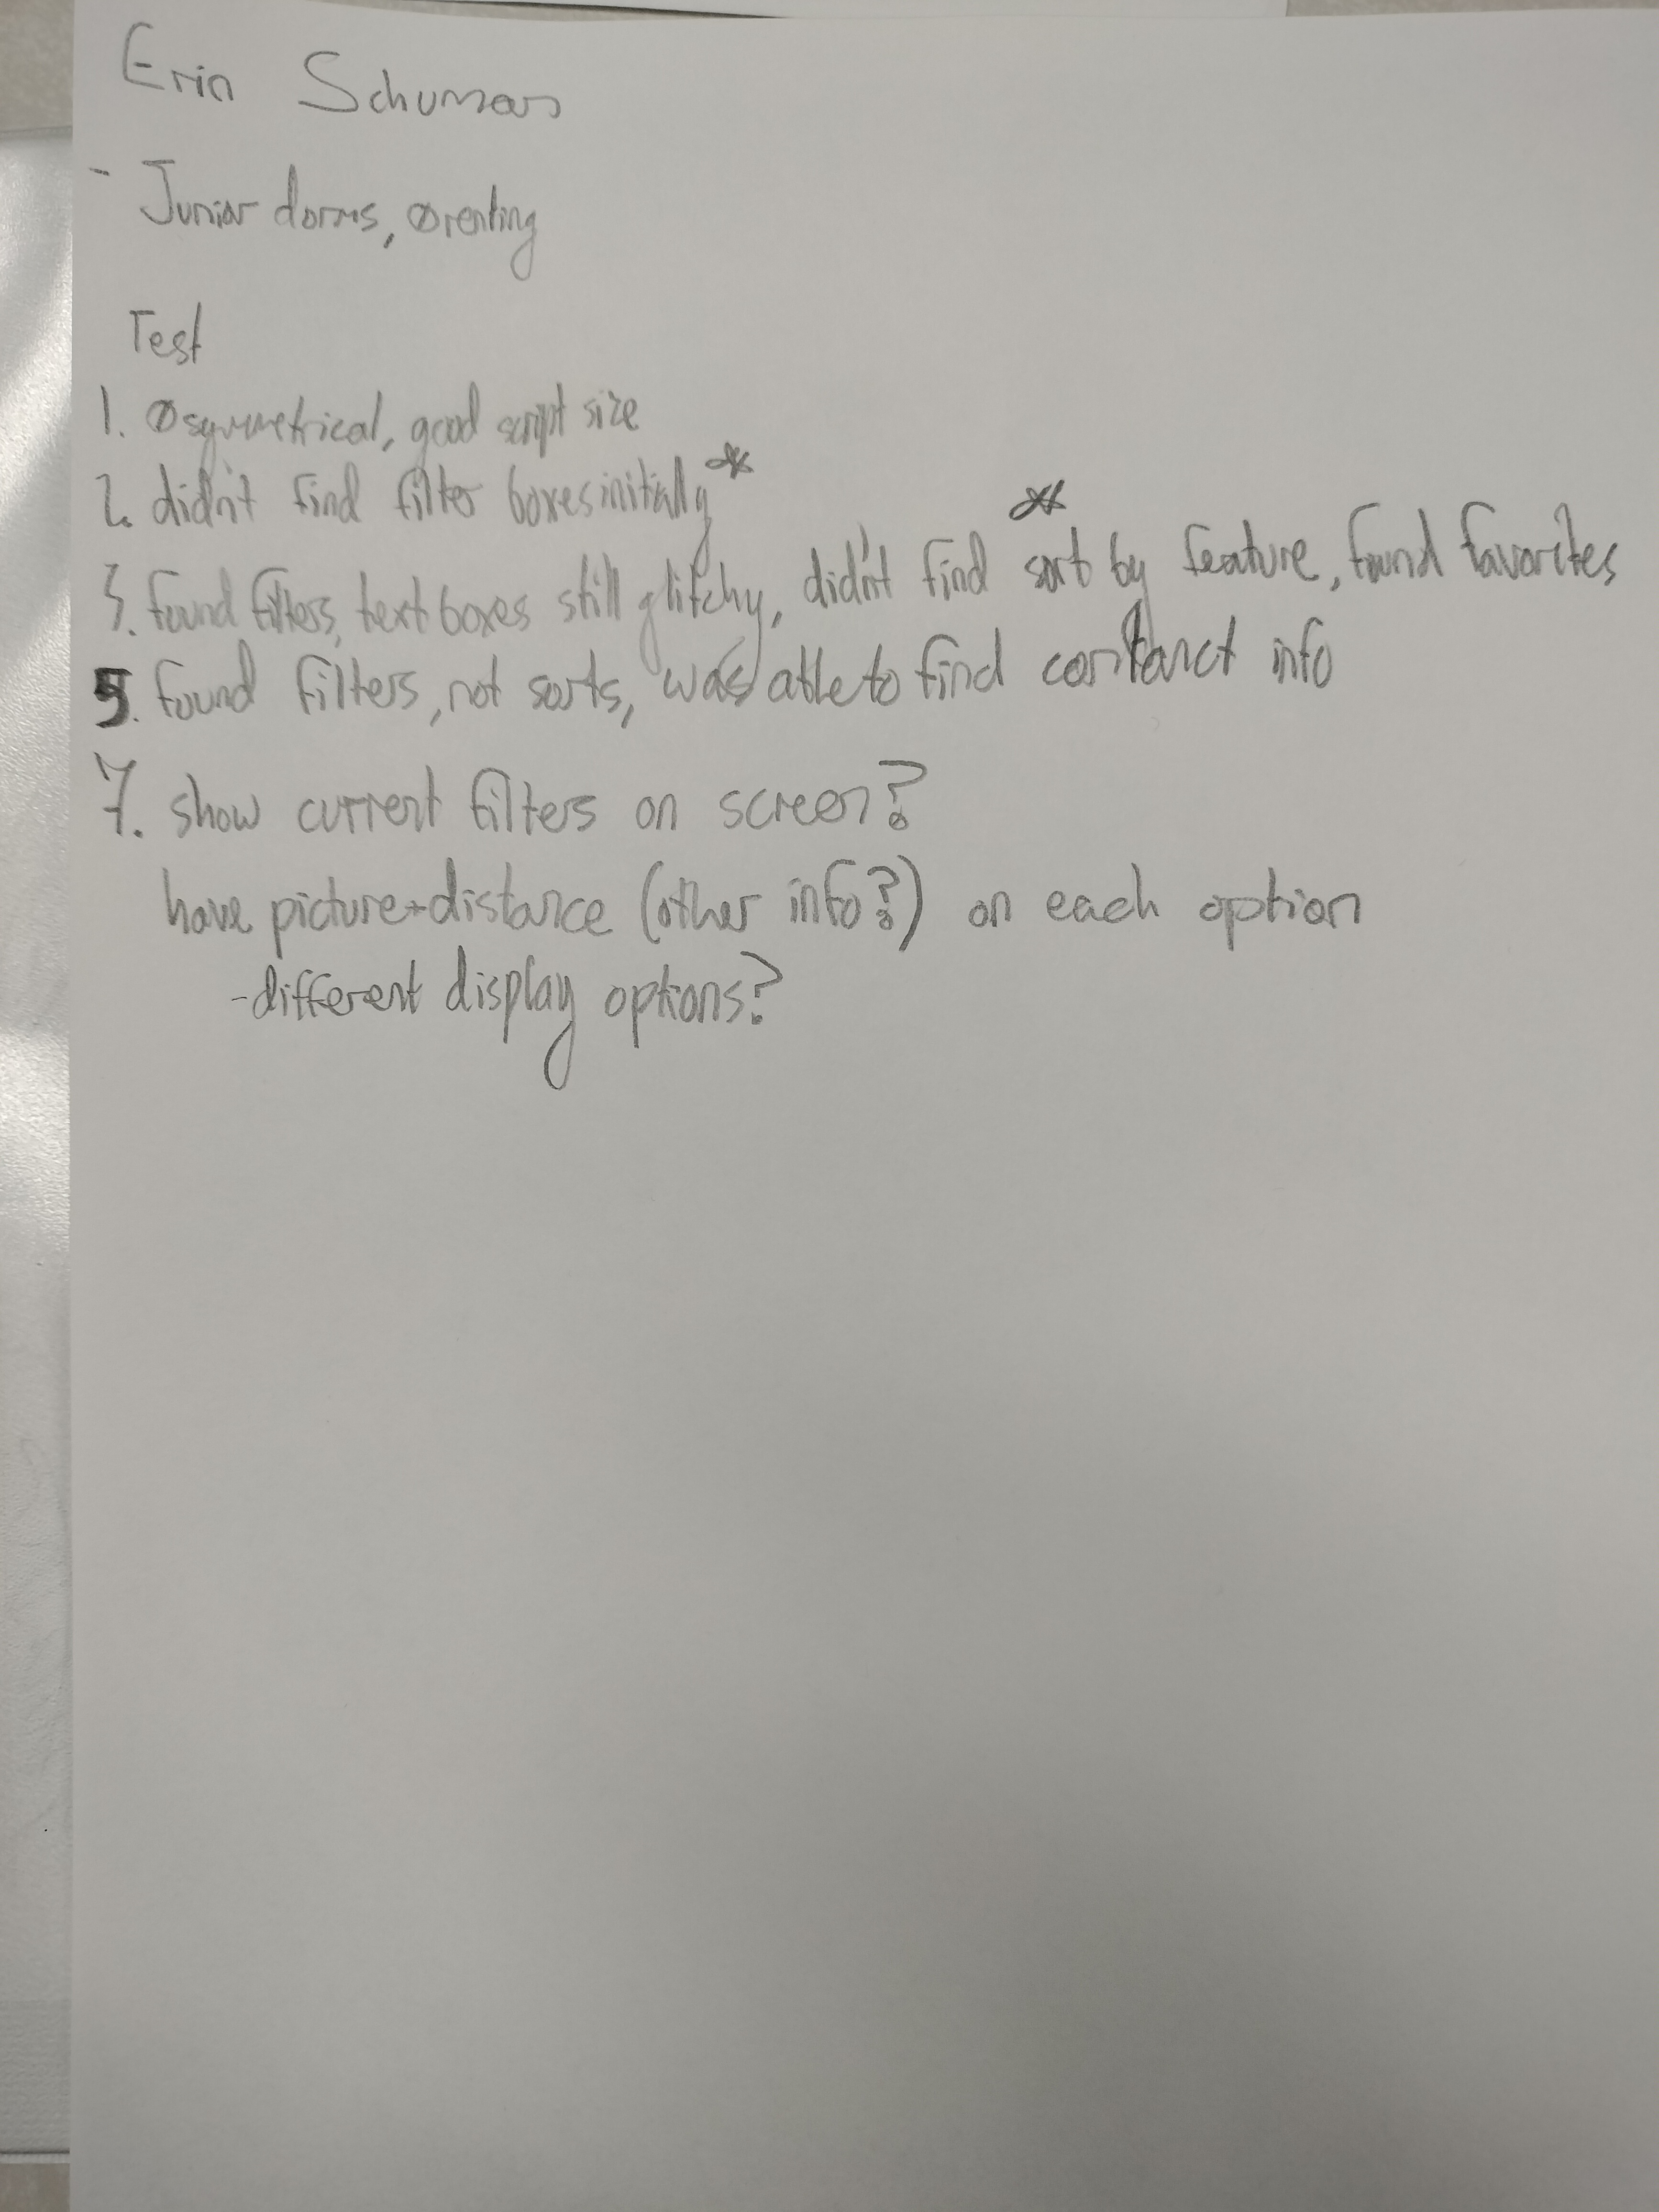 Erin Schumas
- Junior dorms, Ørenting
Test
1. Øsymmetrical, good script size
2. didn't find filter boxes initially *
3. found filters, text boxes still glitchy, didn't find * sort by feature, found favorites
5. found filters, not sorts, was able to find contanct info
7. show current filters on screen?
have picture+distance (other info?) on each option
-different display options?